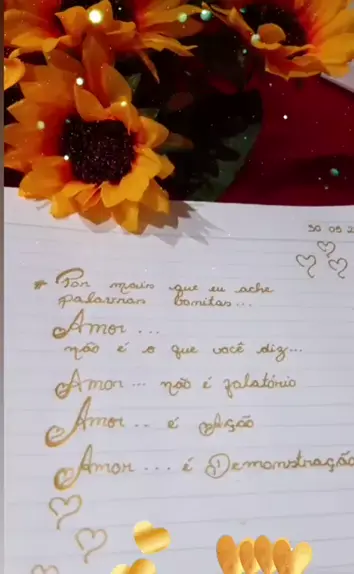 30 05 2
* Por mais que eu ache
palavras bonitas...
Amor ...
não é o que você diz...
Amor ... não é falatório
Amor .. é Ação
Amor ... é Demonstração